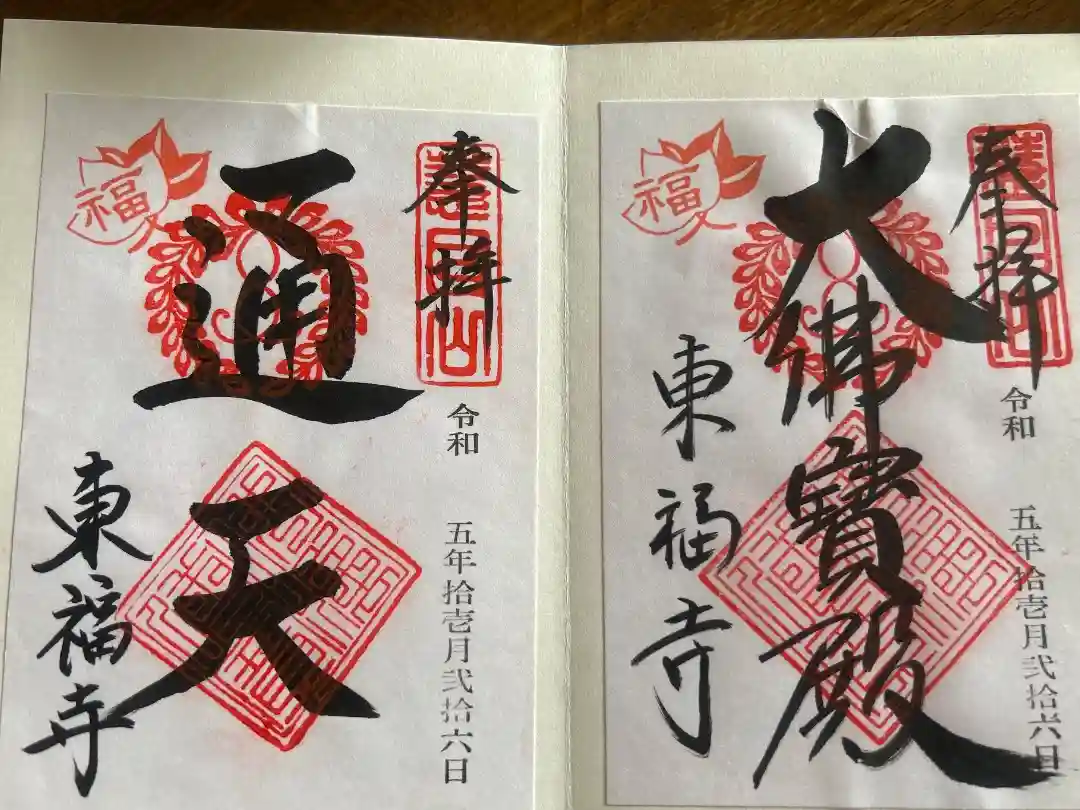 奉拝
慧日山
福
通天
東福寺
令和 五年拾壱月弐拾六日
奉拝
慧日山
福
大佛寶殿
東福寺
令和 五年拾壱月弐拾六日